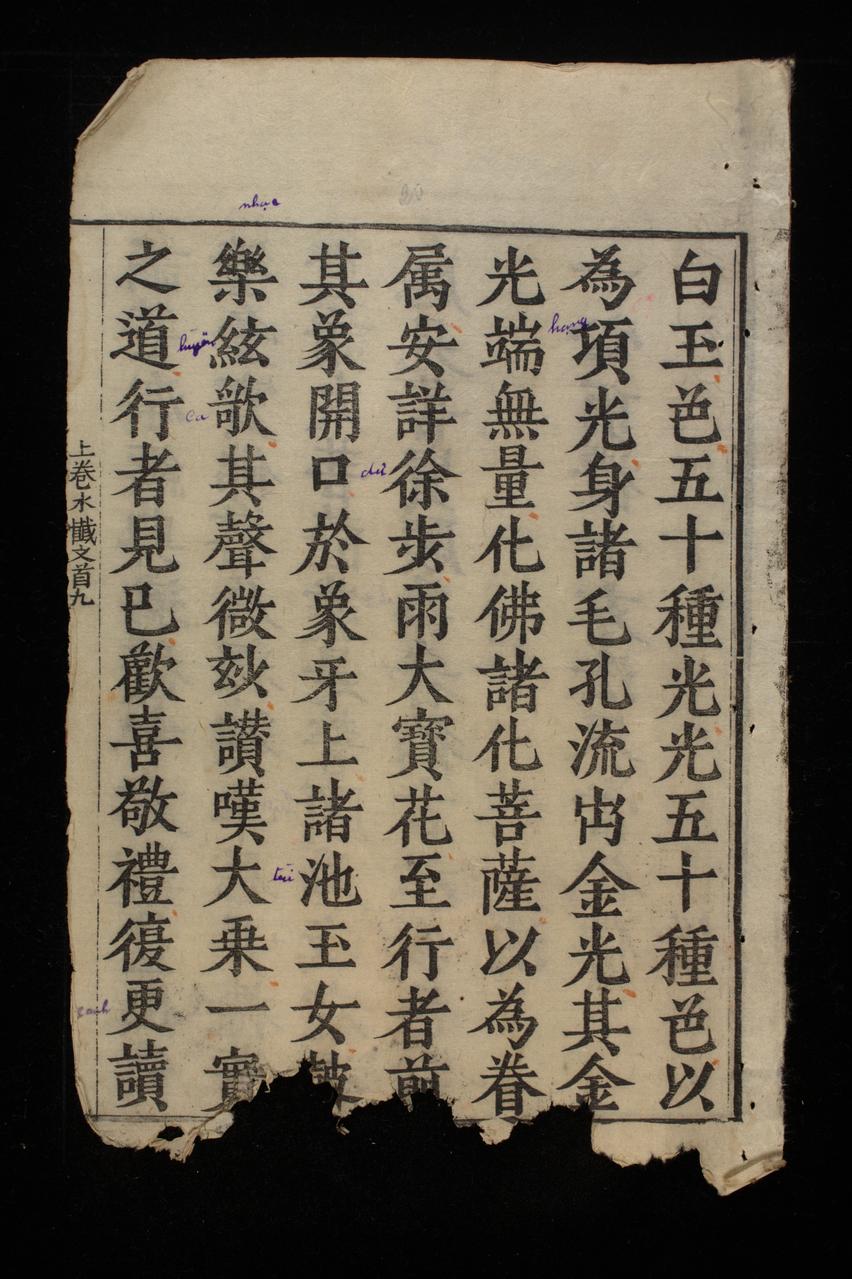 白玉色五十種光光五十種色以
為項光身諸毛孔流出金光其金
光端無量化佛諸化菩薩以為眷
属安詳徐步雨大寳花至行者前
其象開口於象牙上諸池玉女鼓
樂絃歌其聲微玅讃嘆大乗一實
之道行者見巳歡喜敬禮復更讀
上巻水懺文首九
nhạc
hạng
huyền
ca
dừ
trì
canh
20